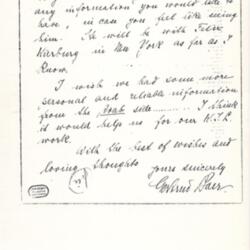 any information you would like to
have, in case you feel like seeing
him. He will be with Felix
Warburg in New York as far as I
know.
I wish we had some more
personal and reliable information
from the Arab side........ I think
it would help us for our W.I.L.
work.
With the best of wishes and
loving thoughts
yours sincerely
Gertrud Baer